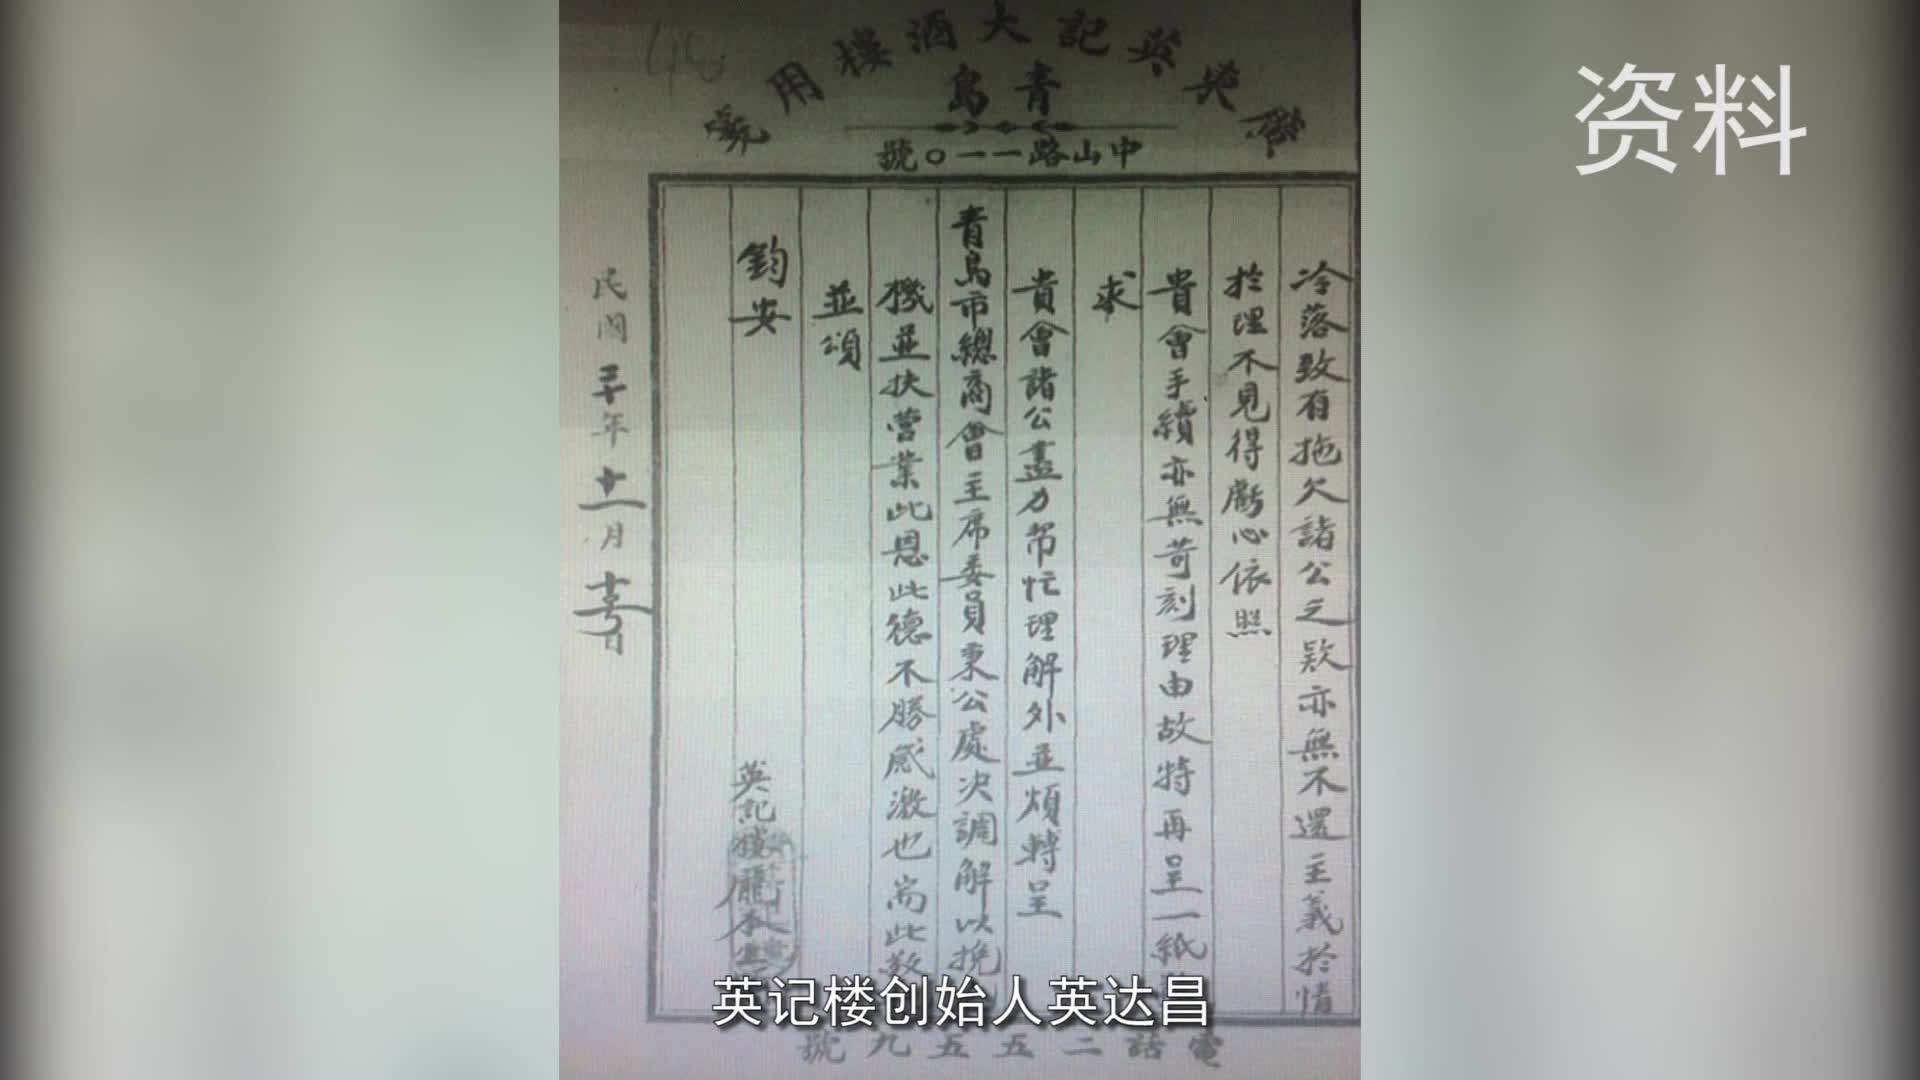 廣東英記大酒樓用箋
青島
中山路一一〇號
資料
冷落致有拖欠諸公之欵亦無不還主義於情
於理不見得虧心依照
貴會手續亦無苛刻理由故特再呈一紙
求
貴會諸公盡力帮忙理解外並煩轉呈
青島市總商會主席委員秉公處决調解以挽
機並扶營業此恩此德不勝感激也耑此敬
並頌
鈞安
英記樓龐本
民國三十年十一月十三日
電話二五五九號
英记楼创始人英达昌